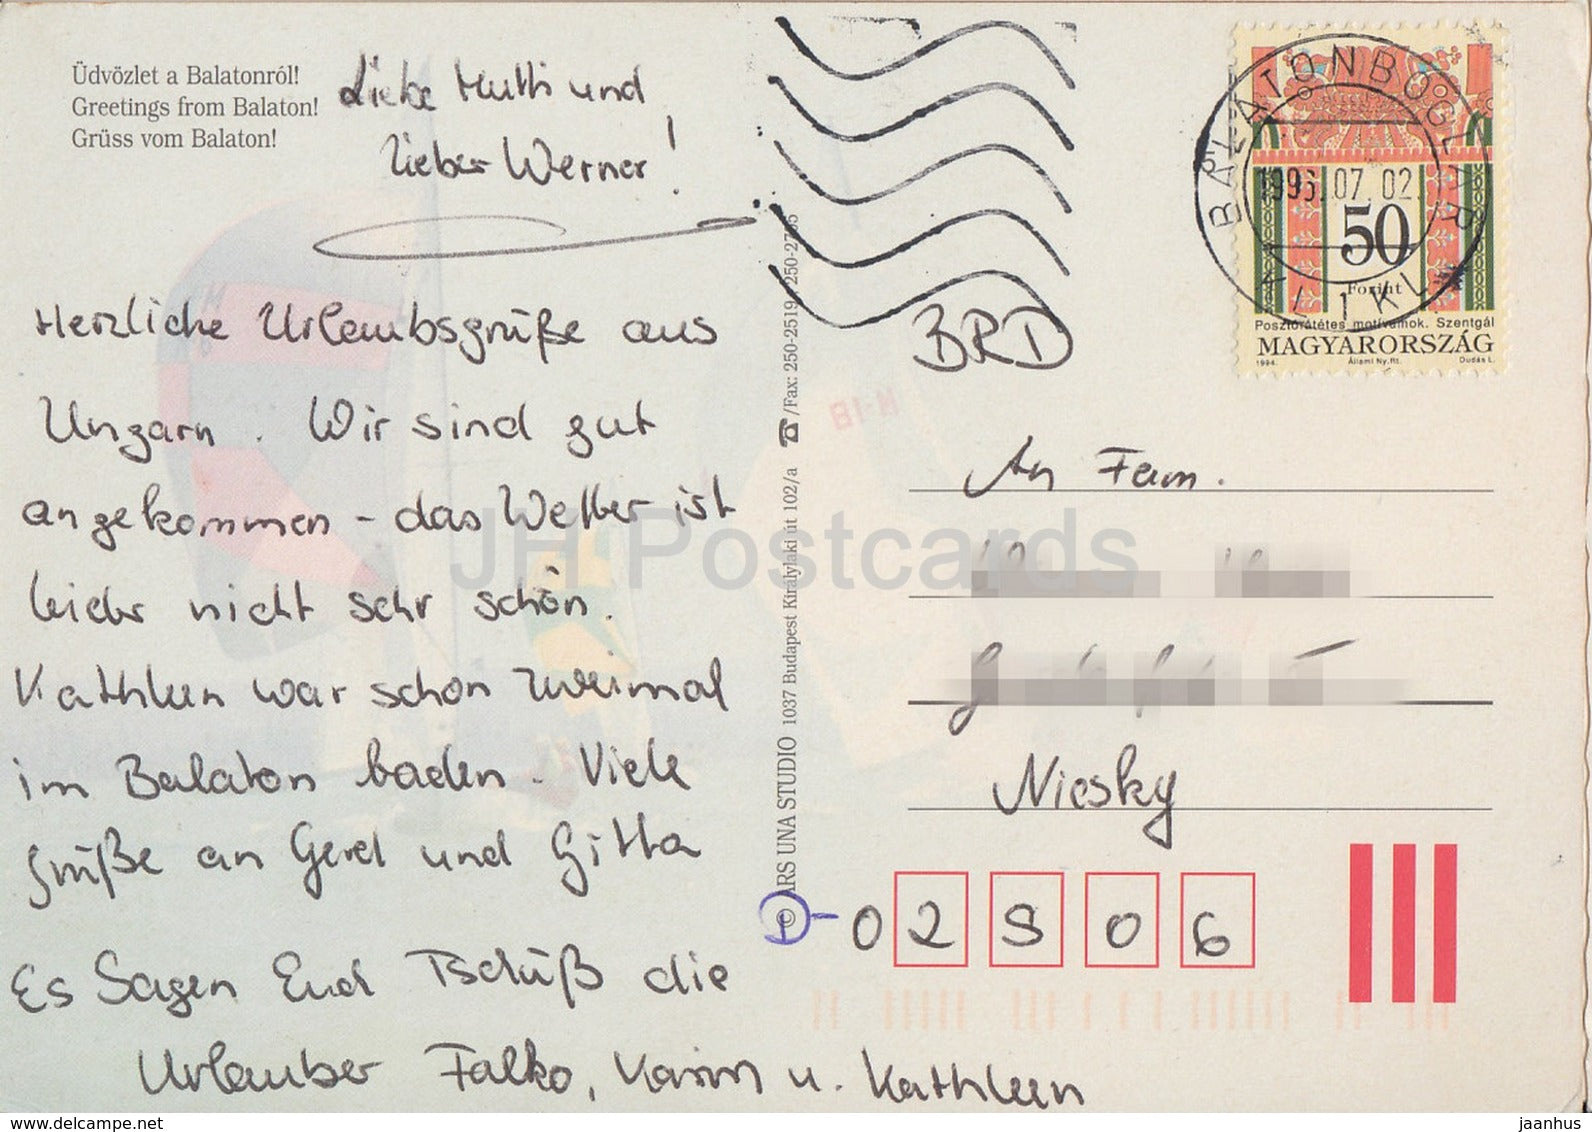 Üdvözlet a Balatonról!
Greetings from Balaton!
Grüss vom Balaton!
Liebe Mutti und
lieber Werner!
Herzliche Urlaubsgrüße aus
Ungarn. Wir sind gut
angekommen - das Wetter ist
leider nicht sehr schön.
Kathleen war schon zweimal
im Balaton baden. Viele
Grüße an Gerd und Gitta
Es Sagen Euch Tschüß die
Urlauber Falko, Karin u. Kathleen
© ARS UNA STUDIO 1037 Budapest Királylaki út 102/a ☎/Fax: 250-2519, 250-2795
BALATONBOGLÁR
1996.07.02.
50
Forint
Posztórátétes motívumok. Szentgál
MAGYARORSZÁG
1994 Állami Ny. Rt. Dudás L.
BRD
H-18
An Fam.
Niesky
D-02906
JH Postcards
www.delcampe.net
jaanhus